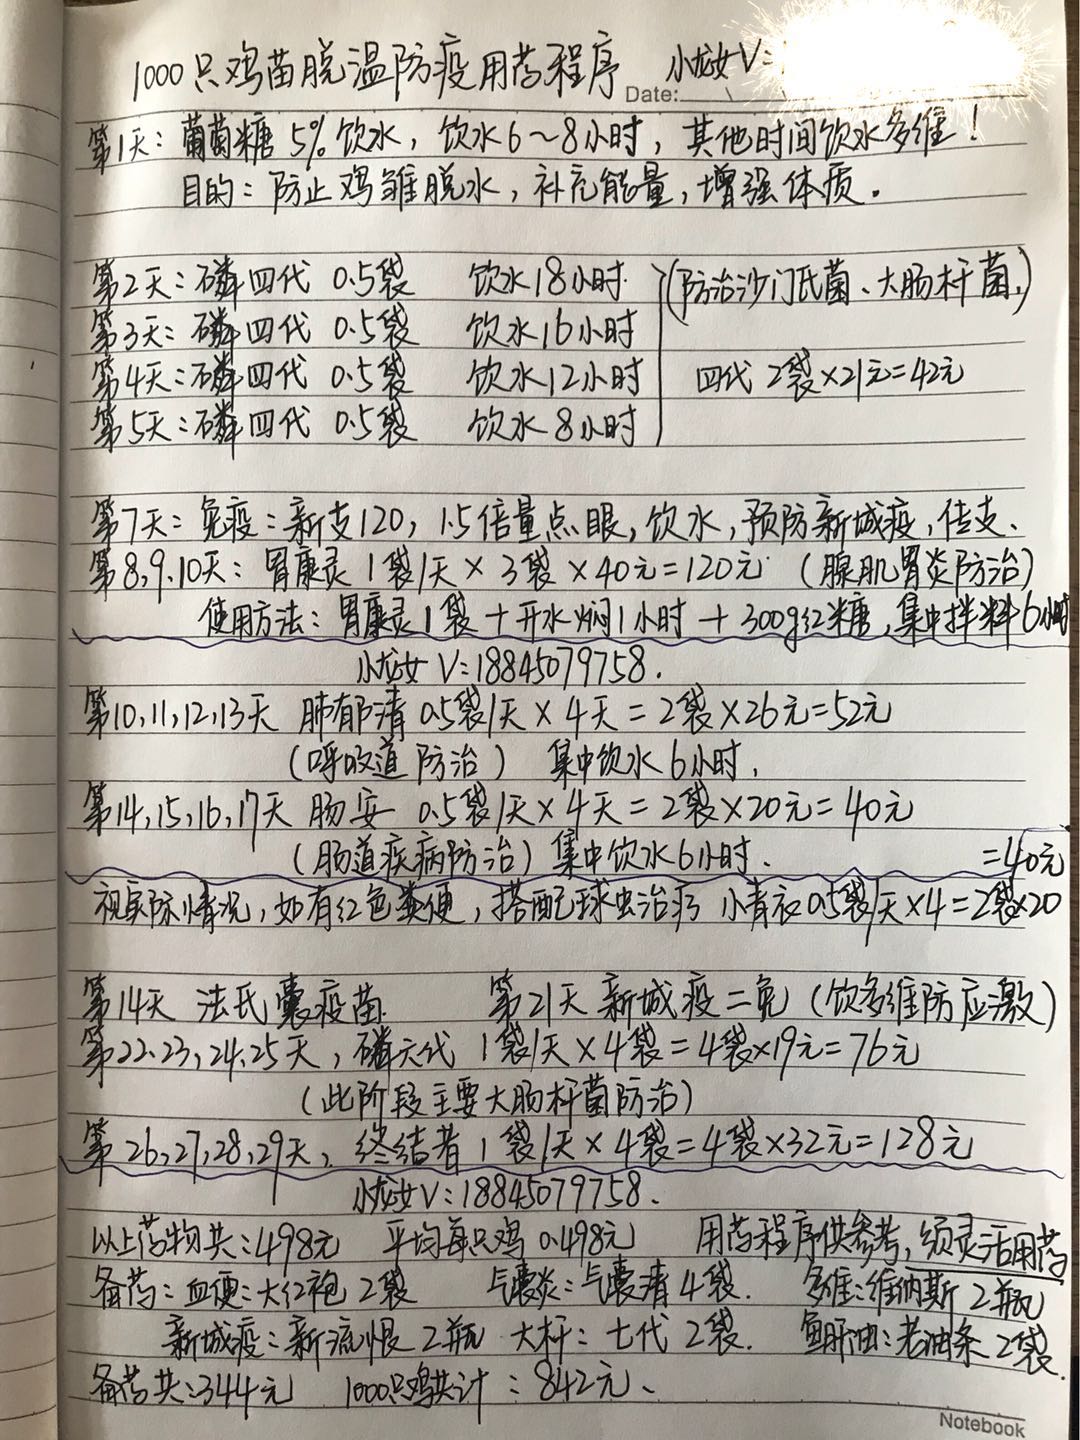 1000只鸡苗脱温防疫用药程序 小龙女V:
Date:
第1天: 葡萄糖 5% 饮水, 饮水6~8小时, 其他时间饮水多维!
目的: 防止鸡雏脱水, 补充能量, 增强体质。
第2天: 磷四代 0.5袋 饮水18小时 (防治沙门氏菌、大肠杆菌)
第3天: 磷四代 0.5袋 饮水16小时
第4天: 磷四代 0.5袋 饮水12小时 四代 2袋×21元=42元
第5天: 磷四代 0.5袋 饮水8小时
第7天: 免疫: 新支120, 1.5倍量点眼, 饮水, 预防新城疫, 传支.
第8,9.10天: 胃康灵 1袋/天 × 3袋 × 40元=120元 (腺肌胃炎防治)
使用方法: 胃康灵1袋 + 开水焖1小时 + 300g红糖, 集中拌料6小时
小龙女 V:18845079758.
第10,11,12,13天 肺郁清 0.5袋/天 × 4天 = 2袋×26元=52元
(呼吸道防治) 集中饮水6小时.
第14,15,16,17天 肠安 0.5袋/天 × 4天 = 2袋×20元=40元
(肠道疾病防治) 集中饮水6小时. =40元
视实际情况, 如有红色粪便, 搭配球虫治疗 小青衣0.5袋/天×4=2袋×20
第14天 法氏囊疫苗 第21天 新城疫二免 (饮多维防应激)
第22.23,24.25天, 磷六代 1袋/天×4袋=4袋×19元=76元
(此阶段主要大肠杆菌防治)
第26,27,28,29天, 终结者 1袋/天 × 4袋=4袋×32元=128元
小龙女V:18845079758.
以上药物共:498元 平均每只鸡 0.498元 用药程序供参考, 须灵活用药
备药: 血便:大红袍 2袋 气囊炎:气囊清4袋. 多维:维纳斯 2瓶
新城疫:新流恨 2瓶 大杆: 七代 2袋. 鱼肝油:老油条 2袋.
备药共:344元 1000只鸡共计: 842元.
Notebook